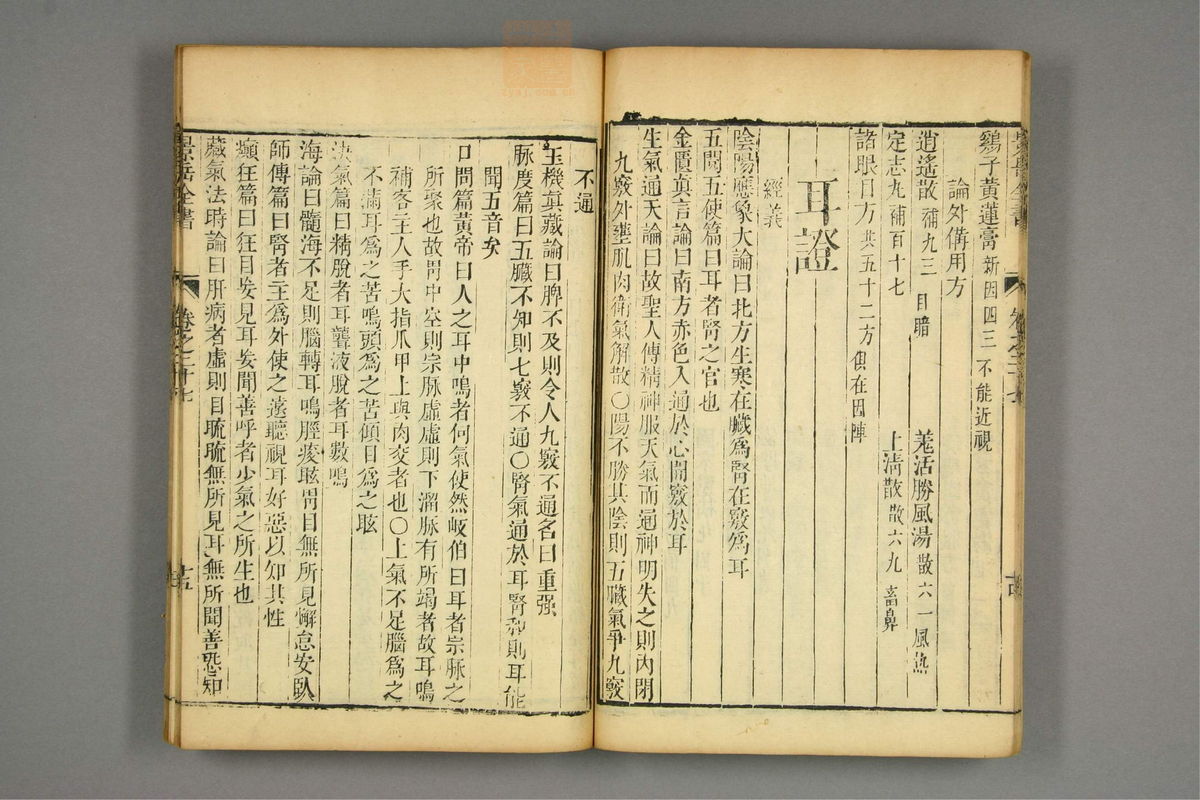 雞子黃連膏新因四三不能近視
論外備用方
逍遙散補九三 目暗 羗活勝風湯散六一風熱
定志丸補百十七 上清散散六九畜鼻
諸眼目方共五十二方俱在因陣
耳證
經義
陰陽應象大論曰北方生寒在臟爲腎在竅爲耳
五閱五使篇曰耳者腎之官也
金匱真言論曰南方赤色入通於心開竅於耳
生氣通天論曰故聖人傳精神服天氣而通神明失之則內閉
九竅外壅肌肉衛氣解散〇陽不勝其陰則五臟氣爭九竅
不通
玉機真藏論曰脾不及則令人九竅不通名曰重强
脉度篇曰五臟不和則七竅不通〇腎氣通於耳腎和則耳能
聞五音矣
口問篇黃帝曰人之耳中鳴者何氣使然岐伯曰耳者宗脉之
所聚也故胃中空則宗脉虛虛則下溜脉有所竭者故耳鳴
補客主人手大指爪甲上與肉交者也〇上氣不足腦爲之
不滿耳爲之苦鳴頭爲之苦傾目爲之眩
決氣篇曰精脫者耳聾液脫者耳數鳴
海論曰髓海不足則腦轉耳鳴脛痠眩冐目無所見懈怠安臥
師傳篇曰腎者主爲外使之遠聽視耳好惡以知其性
癲狂篇曰狂目妄見耳妄聞善呼者少氣之所生也
藏氣法時論曰肝病者虛則目䀮䀮無所見耳無所聞善恐如
景岳全書
卷之二十七
十五